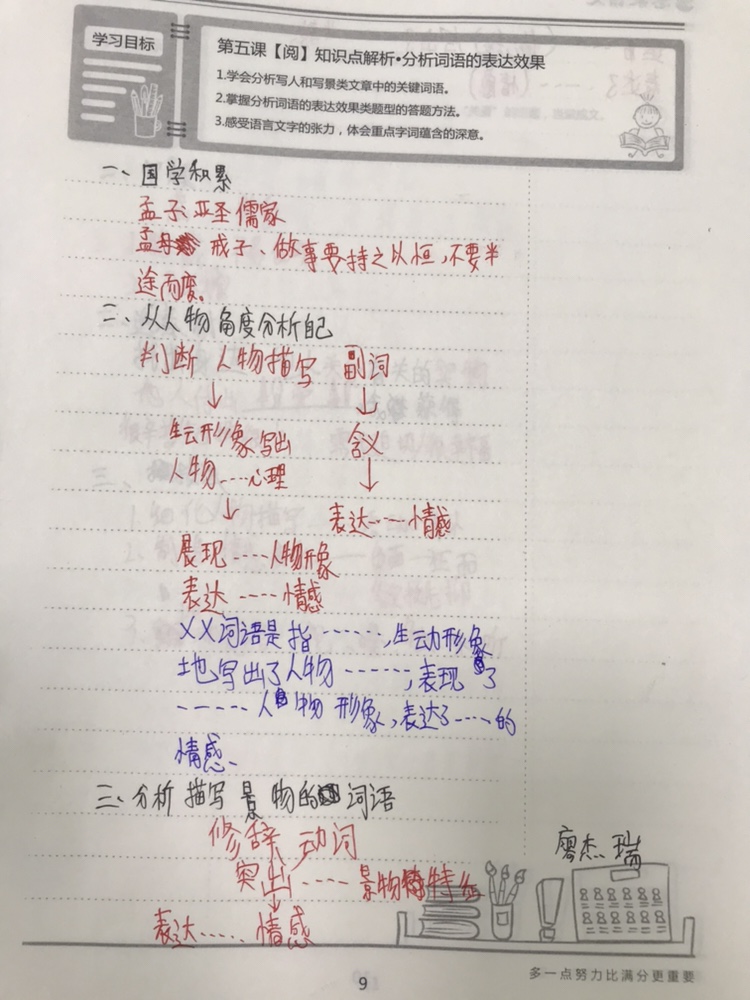 学习目标
第五课【阅】知识点解析•分析词语的表达效果
1.学会分析写人和写景类文章中的关键词语。
2.掌握分析词语的表达效果类题型的答题方法。
3.感受语言文字的张力，体会重点字词蕴含的深意。
一、国学积累
孟子、亚圣儒家
孟母 戒子、做事要持之以恒,不要半
途而废。
二、从人物角度分析自己
判断 人物描写 副词
↓ ↓
生云形象写出 含义
人物……心理 ↓
↓ 表达……情感
展现……人物形象
表达……情感
XX词语是指……,生动形象
地写出了人物……,表现了
……人物 形象,表达了……的
情感、
三、分析 描写 景物的 词语
修辞、动词
突出……景物特
↓
表达…… 情感
廖杰瑞
多一点努力比满分更重要
9